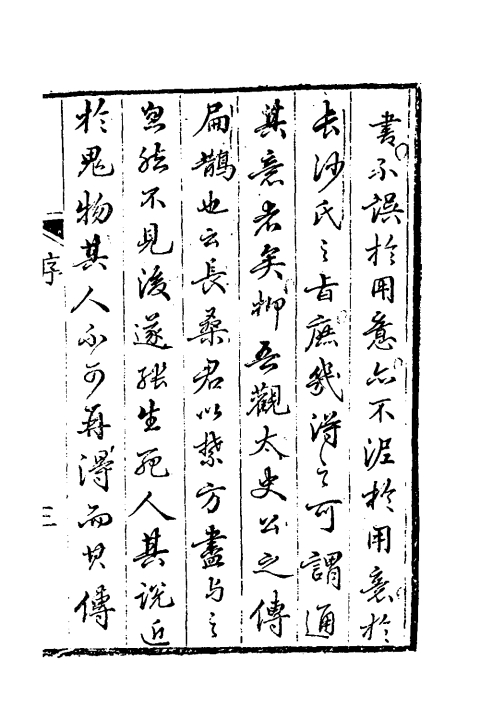 書不誤於用意亦不泥於用意於
長沙氏之旨庶幾得之可謂通
其意者矣抑吾觀太史公之傳
扁鵲也云長桑君以禁方盡與之
忽然不見後遂能生死人其說近
於鬼物其人不可再得而其傳
序
三